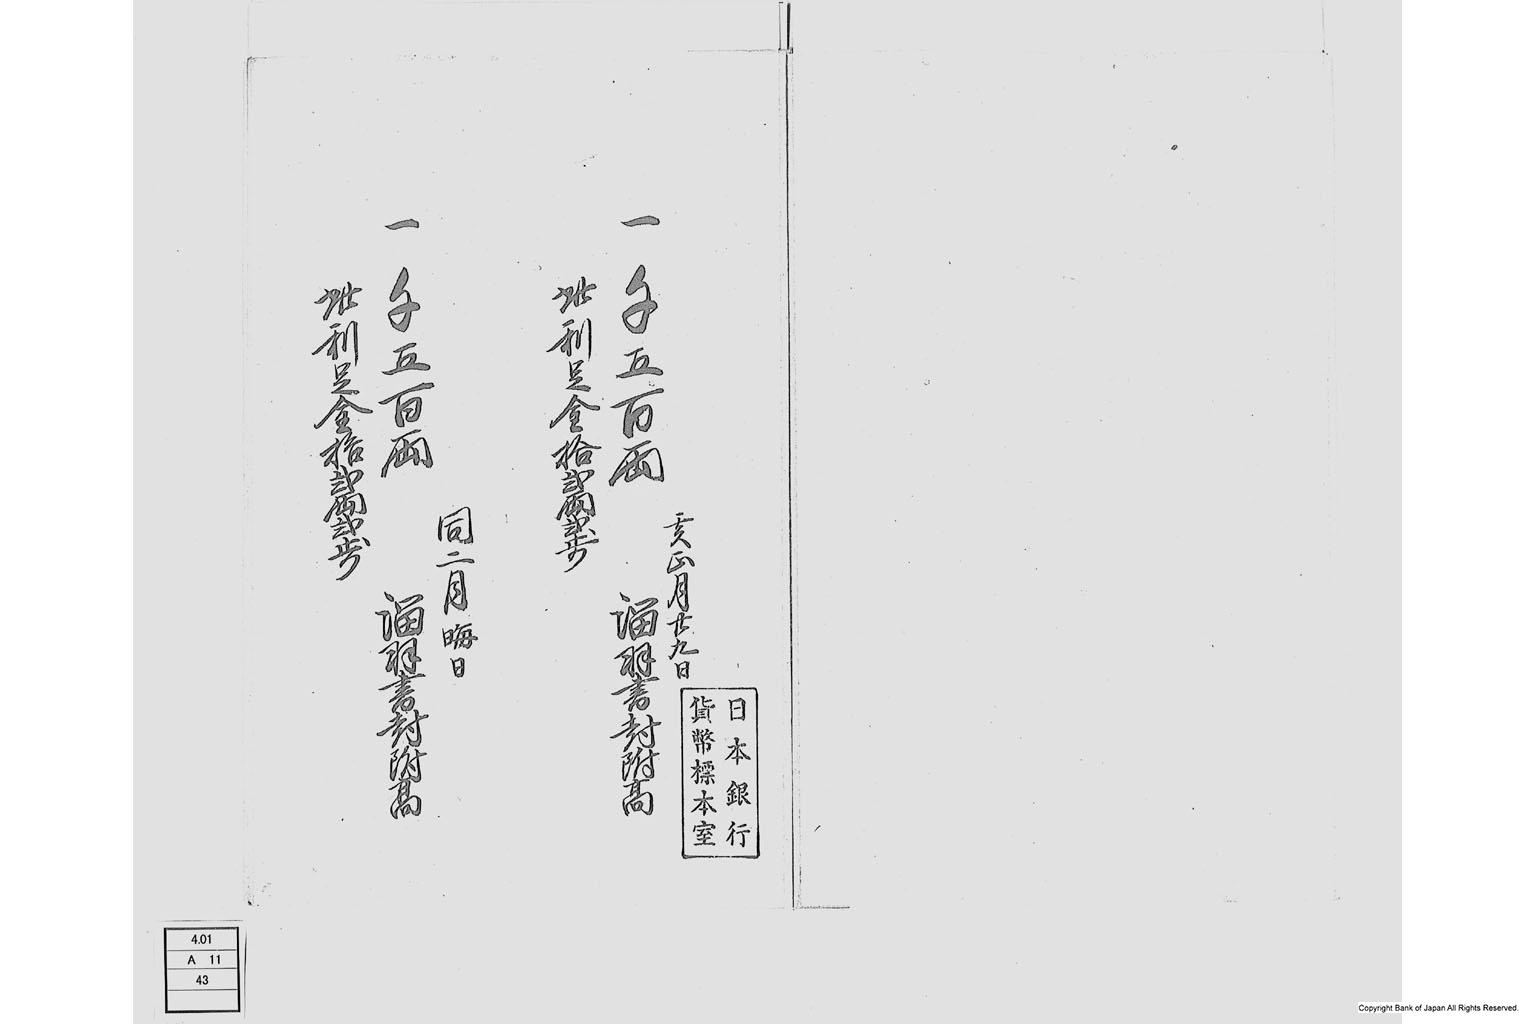 日本銀行
貨幣標本室
亥正月廿九日
一千五百両
溜羽書封附高
此利足金拾弐両弐歩
同二月晦日
一千五百両
溜羽書封附高
此利足金拾弐両弐歩
4.01
A 11
43
Copyright Bank of Japan All Rights Reserved.